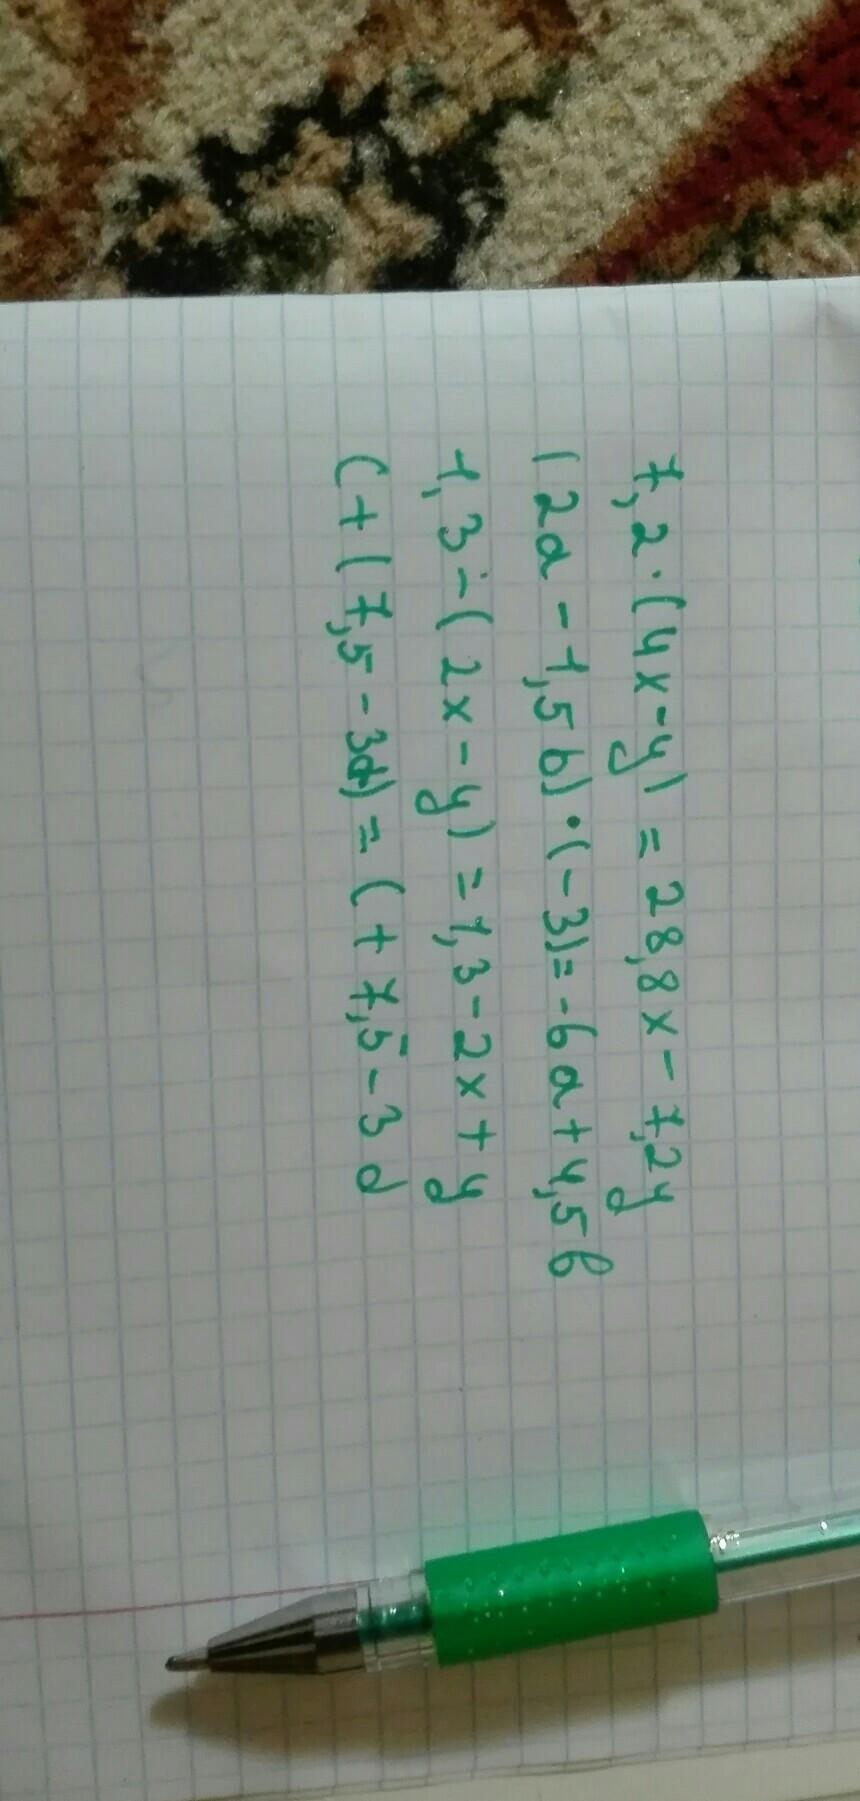 7,2·(4x-y) = 28,8x-7,2y
(2a-1,5b)·(-3)=-6a+4,5b
1,3-(2x-y)=1,3-2x+y
c+(7,5-3d)=c+7,5-3d